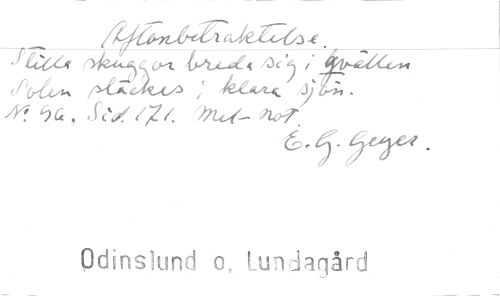 Aftonbetraktelse.
Stilla skuggor breda sig i qvällen
Solen släckes i klara sjön.
No. 9a. Sid. 171. Mel- not.
E. G. Geyer.
Odinslund o, Lundagård